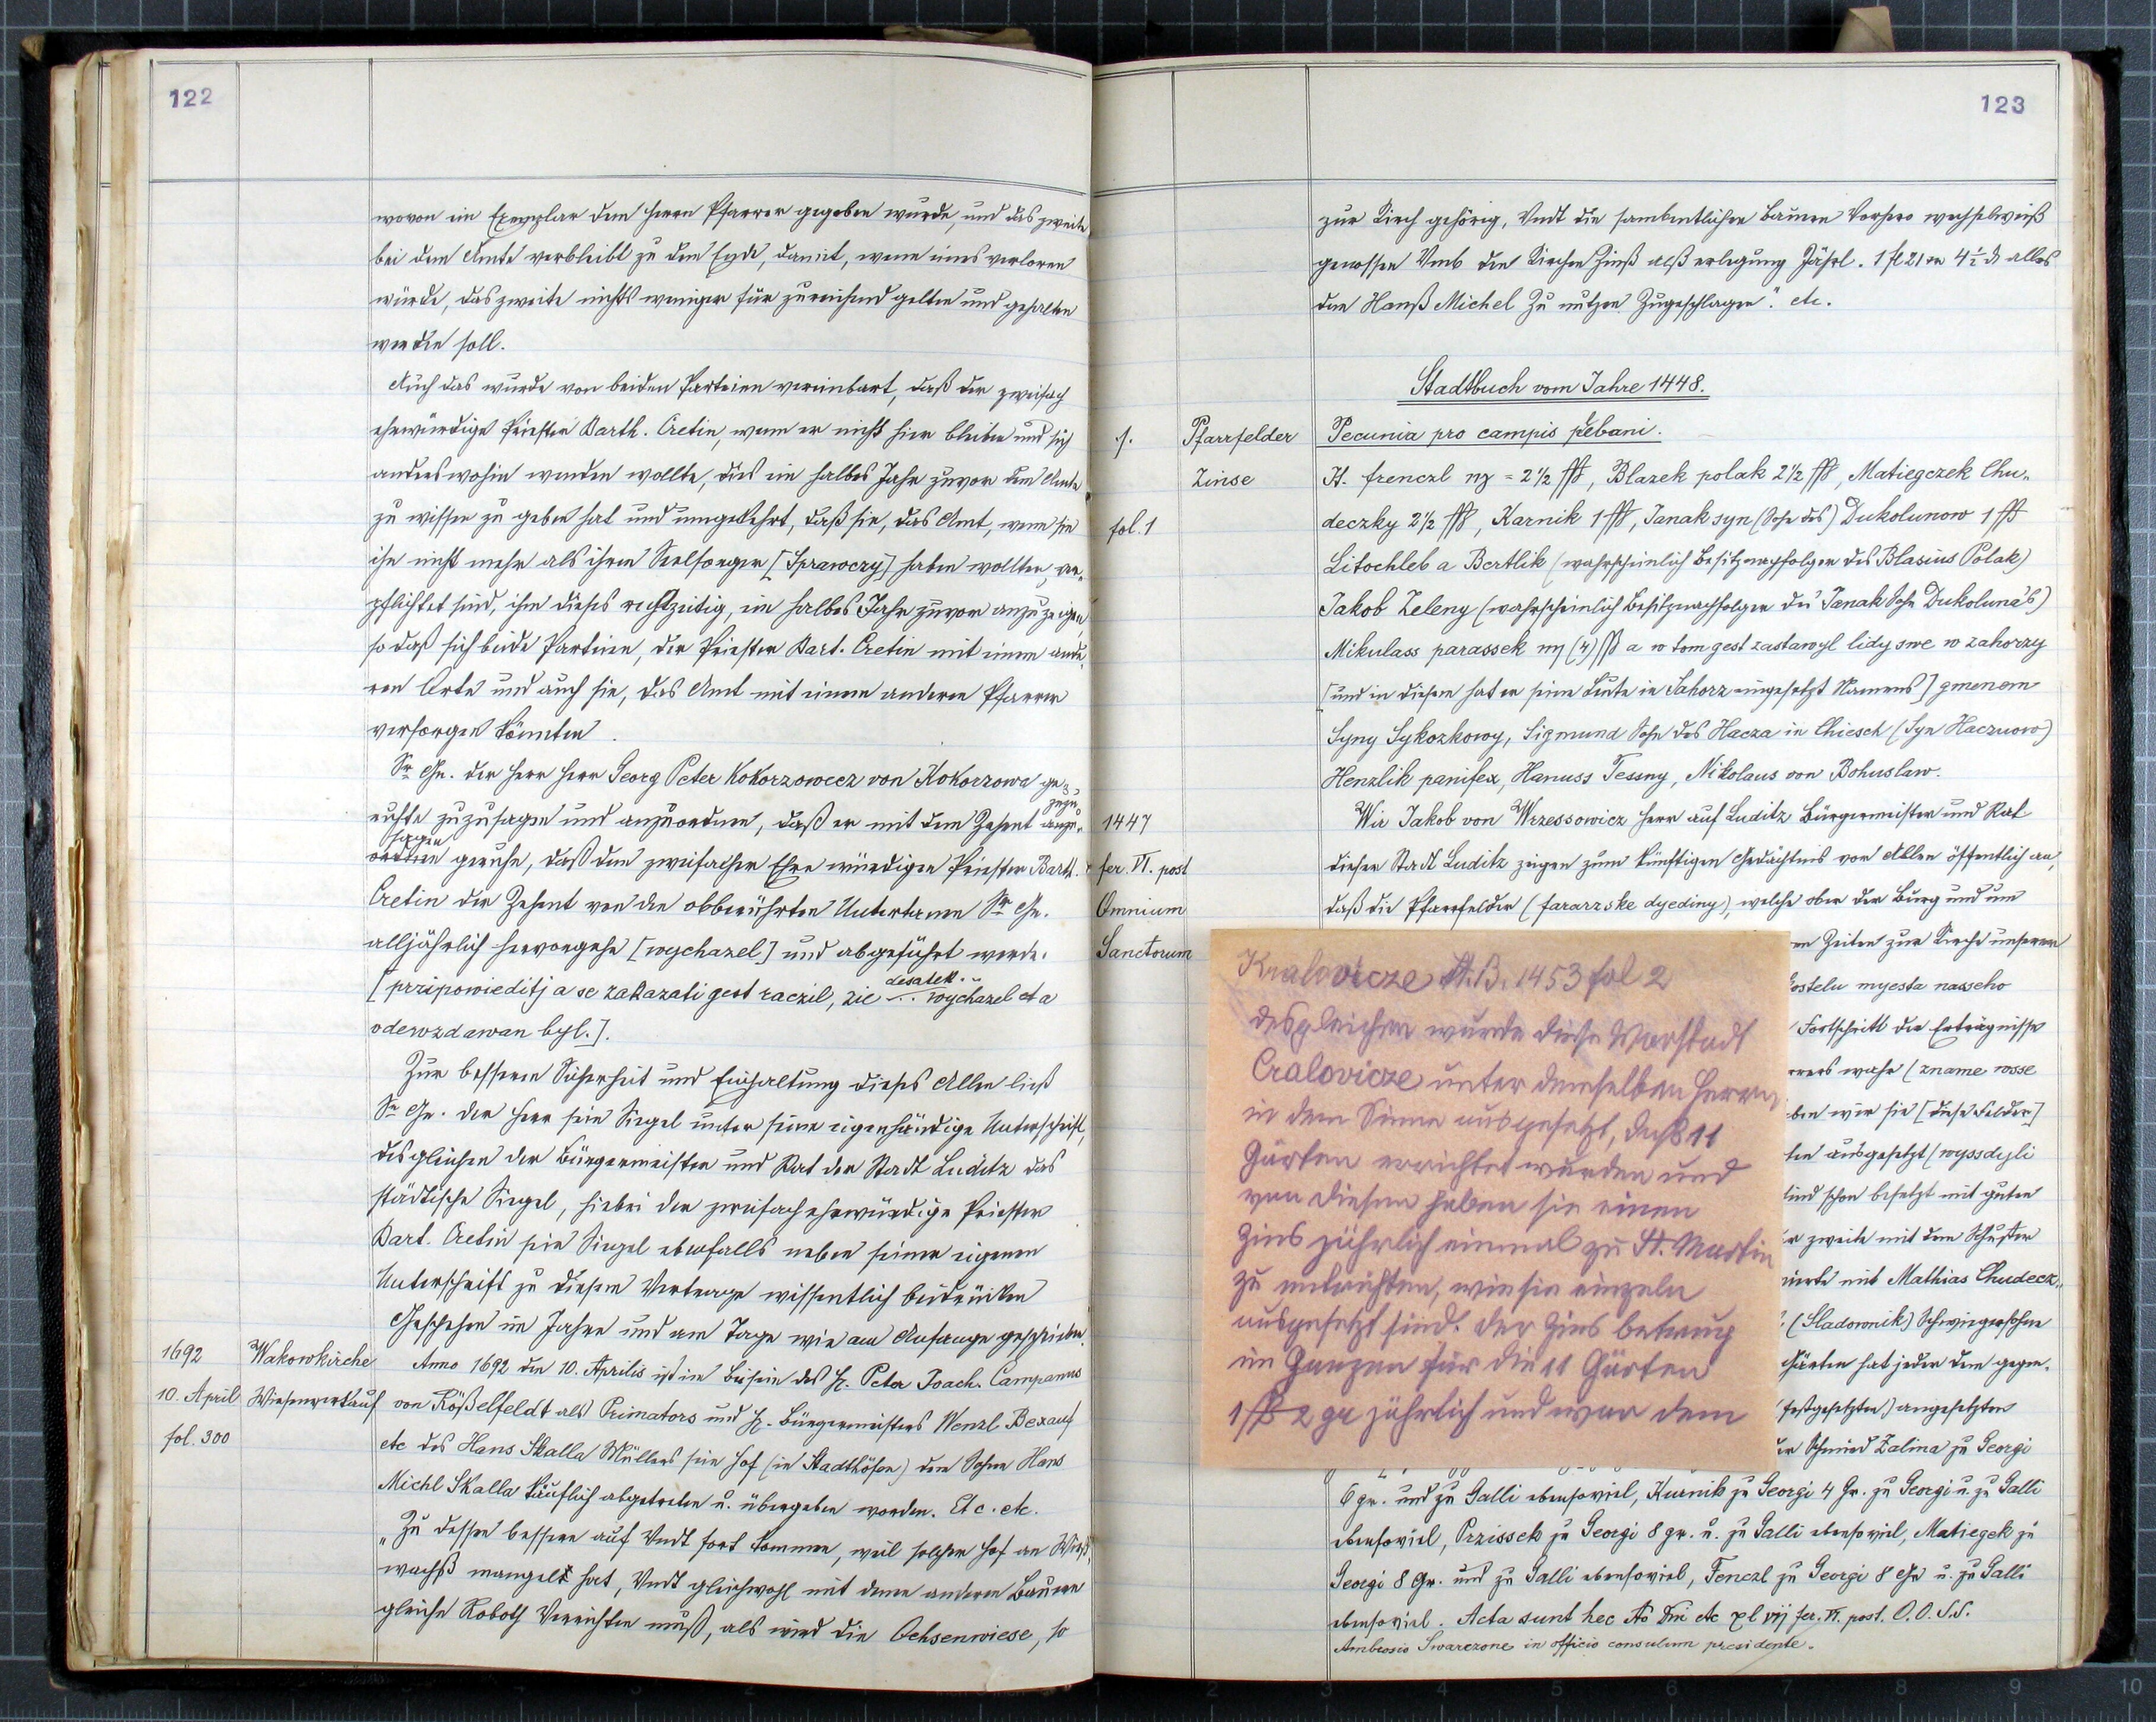 122
wovon ein Exemplar dem Herrn Pfarrer gegeben wurde, und das zweite
bei dem Amte verbleibt zu dem Ende, damit, wenn eines verloren
würde, das zweite nichts weniger für zureichend gelten und gehalten
werden soll.
Auch das wurde von beiden Parteien vereinbart, daß der zweifach
ehrwürdige Priester Barth. Cretin, wenn er nicht hier bleiben und sich
anderswohin wenden wollte, dies ein halbes Jahr zuvor dem Amte
zu wissen zu geben hat und umgekehrt, daß sie, das Amt, wenn sie
ihn nicht mehr als ihren Seelsorger [Sprawczy] haben wollten, ver„
pflichtet sind, ihm dieses rechtzeitig, ein halbes Jahr zuvor anzuzeigen,
so daß sich beide Parteien, der Priester Bart. Cretin mit einem ande„
ren Orte und auch sie, das Amt mit einem anderen Pfarrer
versorgen könnten.
Sr Gn. der Herr Herr Georg Peter Kokorzowecz von Kokorzowa ge„
ruhte zuzusagen und anzuordnen, daß er mit dem Zehent anzu„ zuzu„
ordnen sagen geruhe, daß dem zweifacher Ehre würdigen Priester Barth.
Cretin der Zehent von den obberührten Untertanen Sr Gn.
alljährlich hervorgehe [wychazel] und abgeführt werde.
[przipowieditj a se zakazati gest raczil, zie desatek .. wychazel et a
odewzdawan byl.].
Zur besseren Sicherheit und Einhaltung dieses Allen ließ
Sr Gn. der Herr sein Siegel unter seine eigenhändige Unterschrift,
desgleichen der Bürgermeister und Rat der Stadt Luditz das
städtische Siegel, hiebei der zweifach ehrwürdige Priester
Bart. Cretin sein Siegel ebenfalls neben seiner eigenen
Unterschrift zu diesem Vertrage wissentlich beidrücken
Geschehen im Jahre und am Tage wie am Anfange geschrieben.
1692 Wakowkirche Anno 1692 den 10. Aprilis ist im Beisein des H. Peter Joach. Campanus
10. April Wiesenverkauf von Rößelfeldt als Primators und H. Bürgermeisters Wenzl Bexauf
fol. 300 etc des Hans Skalla Müllers sein Hof (in Stadthöfen) dem Sohne Hans
Michl Skalla käuflich abgetreten u. übergeben worden. Etc. etc.
„Zu dessen bessern auf Vndt fort kommen, weil solcher Hof an Wieß„
wachß mangelt hat, Vndt gleichwohl mit denen anderen Bauern
gleiche Roboth Verrichten muß, als wird die Ochsenwiese, so
123
zur Kirch gehörig, Vndt die sambentlichen Bauern Vorhero wechselweiß
genossen Vmb den Kirchen Zinß alß erlegung Jährl. 1 fl 21 xr 4½ d alles
dem Hanß Michel Zu nutzen Zugeschlagen". etc.
Stadtbuch vom Jahre 1448.
1. Pfarrfelder Pecunia pro campis plebani.
Zinse It. frenczl nz = 2½ ßß, Blazek polak 2½ ßß, Matiegczek Chu„
fol. 1 deczky 2½ ßß, Karnik 1 ßß, Janak syn (Sohn des) Dukolunow 1 ßß
Litochleb a Bertlik (wahrscheinlich Besitznachfolger des Blasius Polak)
Jakob Zeleny (wahrscheinlich Besitznachfolger des Janak Sohn Dukoluna's)
Mikulass parassek mj (4) ßß a w tom gest zastawyl lidy swe w zahorzy
[und in diesem hat er seine Leute in Sahorz eingesetzt Namens] gmenem
Syny Sykozkowy, Sigmund Sohn des Hacza in Chiesch (Syn Haczuow)
Henzlik panifex, Hanuss Tessny, Nikolaus von Bohuslaw.
1447 Wir Jakob von Wrzessowicz Herr auf Luditz Bürgermeister und Rat
fer. VI. post dieser Stadt Luditz zeigen zum künftigen Gedächtnis vor Allen öffentlich an,
Omnium daß die Pfarrfelder (fararzske dyediny), welche ober der Burg und um
Sanctorum
en Zeiten zur Kirche unserer
kostelu myesta nasseho
Fortschritt die Erträgnisse
rrers wahr (zname wsse
ben wir sie [diese Felder]
ten ausgesetzt (wyssdyli
sind schon besetzt mit guten
r zweite mit dem Schuster
vierte mit Mathias Chudecz„
(Sladownik) Schwiegersohne
Gärten hat jeder dem gegen„
(festgesetzten) angesetzten
der Schmied Zalina zu Georgi
Kralovicze St.B. 1453 fol 2
desgleichen wurde diese Vorstadt
Cralovicze unter demselben Herrn,
in dem Sinne ausgesetzt, daß 11
Gärten errichtet wurden und
von diesen haben sie einen
Zins jährlich einmal zu St. Martin
zu entrichten, wie sie einzeln
ausgesetzt sind. Der Zins betrug
im Ganzen für die 11 Gärten
1 ßß 2 gr jährlich und war dem
6 gr. und zu Galli ebensoviel, Kurnik zu Georgi 4 Gr. zu Georgi u. zu Galli
ebensoviel, Przissek zu Georgi 8 gr. u. zu Galli ebensoviel, Matiegek zu
Georgi 8 Gr. und zu Galli ebensoviel, Fenczl zu Georgi 8 Gr u. zu Galli
ebensoviel. Acta sunt hec Ao Dni etc xl vij fer. VI. post. O.O.S.S.
Ambrosio Swarczone in officio consulum presidente.